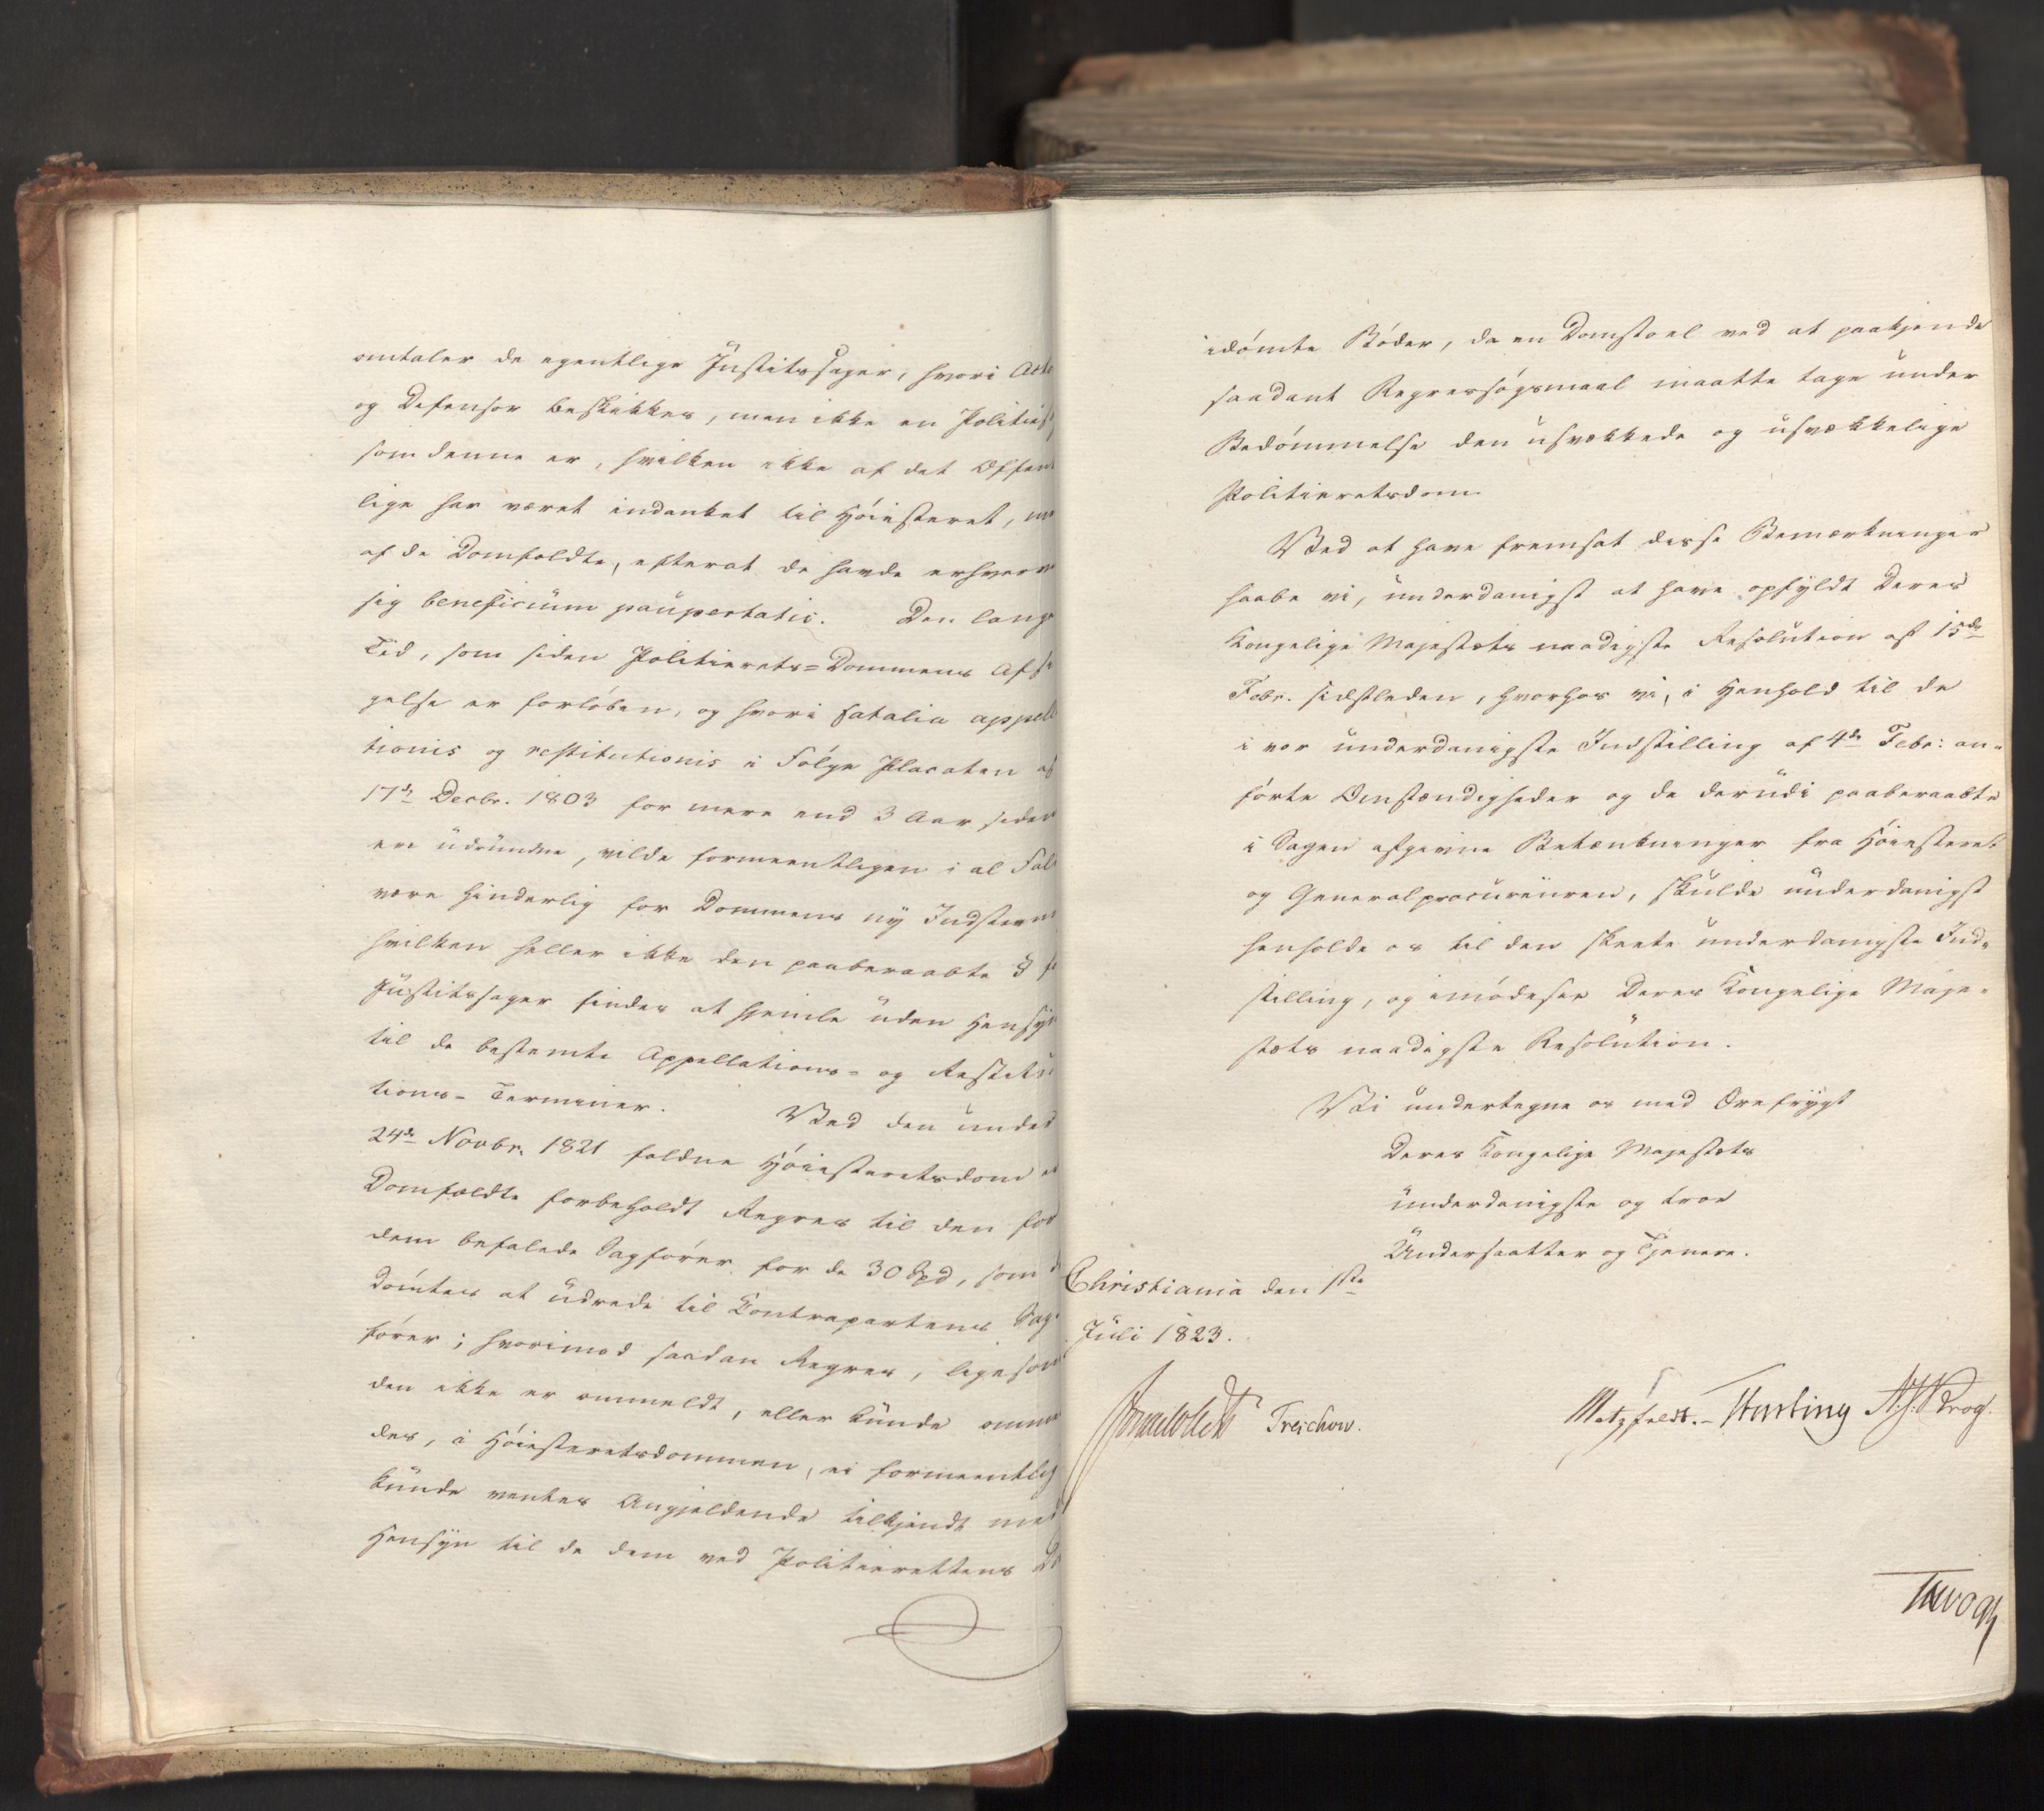 omtaler de egentlige Justitssager, hvori Acto
og Defensor beskikkes, men ikke en Polities
som denne er, hvilken ikke af det Offent
lige har været indanket til Høiesteret, men
af de Domfældte, efterat de havde erhvervet
sig beneficium paupertatis. Den lange
Tid, som siden Politierets-Dommens Afsi
gelse er forløben, og hvori fatalia appella
tionis og restitutionis i Følge Placaten af
17de Decbr. 1803 for mere end 3 Aar siden
ere udrundne, vilde formeentligen i al Fald
være hinderlig for Dommens ny Indstevn
hvilken heller ikke den paaberaabte §
Justitssager findes at hjemle uden Hensyn
til de bestemte Appellations- og Restitu
tions-Terminer. Ved den under
24de Novbr. 1821 faldne Høiesteretsdom er
Domfældte forbeholdt Regres til den for
dem befalede Sagfører for de 30 Spd, som de
dømtes at udrede til Contrapartens Sag-
fører; hvorimod saadan Regres, ligesom
den ikke er ommeldt, eller kunde omme
des, i Høiesteretsdommen, ei formeentlig
kunde ventes Angjeldende tilkjendt med
Hensyn til de dem ved Politierettens Do
idømte Bøder, da en Domstoel ved at paakjende
saadant Regressøgsmaal maatte tage under
Bedømmelse den usvækkede og usvækkelige
Politieretsdom.
Ved at have fremsat disse Bemærkninger
haabe vi, underdanigst at have opfyldt Deres
Kongelige Majestæts naadigste Resolution af 15de
Febr. sidstleden, hvorhos vi, i Henhold til de
i vor underdanigste Indstilling af 4de Febr: an-
førte Omstændigheder og de derudi paaberaabte
i Sagen afgivne Betænkninger fra Høiesteret
og Generalprocureuren, skulde underdanigst
henholde os til den skeete underdanigste Ind-
stilling, og imødesee Deres Kongelige Maje-
stæts naadigste Resolution.
Vi undertegne os med Ærefrygt
Deres Kongelige Majestæts
underdanigste og troe
Undersaatter og Tjenere.
Christiania den 1ste
Juli 1823.
Sommerhielm Treschow.
Motzfeldt. Hurting Krog.
Vogt